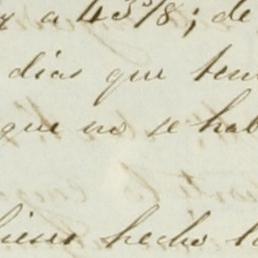 a 43 5/8; de
dias que ten
que no se hab
hecho